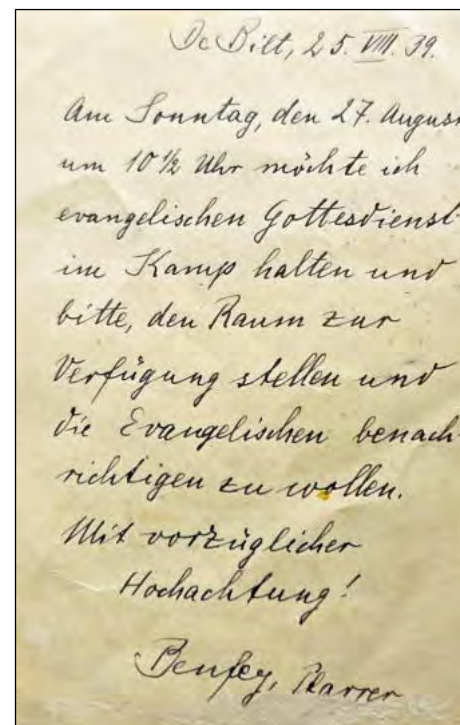 De Bilt, 25. VIII. 39.
Am Sonntag, den 27. August
um 10 1/2 Uhr möchte ich
evangelischen Gottesdienst
im Kamp halten und
bitte, den Raum zur
Verfügung stellen und
die Evangelischen benach-
richtigen zu wollen.
Mit vorzüglicher
Hochachtung!
Benfey, Pfarrer